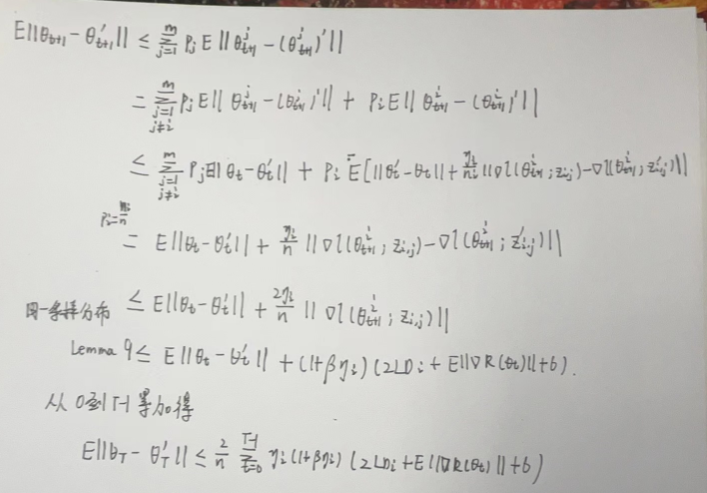 E||θ_{t+1} - θ'_{t+1}|| ≤ Σ_{j=1}^{m} P_j E||θ^j_{t+1} - (θ^j_{t+1})'||
= Σ_{j=1, j≠i}^{m} P_j E||θ^j_{t+1} - (θ^j_{t+1})'|| + P_i E||θ^i_{t+1} - (θ^i_{t+1})'||
≤ Σ_{j=1, j≠i}^{m} P_j E||θ_t - θ'_t|| + P_i E[||θ'_t - θ_t|| + η_i/n_i ||∇l(θ^i_{t+1}; z_{i,j}) - ∇l(θ^i_{t+1}; z'_{i,j})||
P_i = n_i/n = E||θ_t - θ'_t|| + η_i/n ||∇l(θ^i_{t+1}; z_{i,j}) - ∇l(θ^i_{t+1}; z'_{i,j})||
同一 分布 ≤ E||θ_t - θ'_t|| + 2η_i/n ||∇l(θ^i_{t+1}; z_{i,j})||
Lemma 9 ≤ E||θ_t - θ'_t|| + (1+βη_i)(2LD_i + E||∇R(θ_t)|| + 6).
从0到T-1累加得
E||θ_T - θ'_T|| ≤ 2/n Σ_{t=0}^{T-1} η_i(1+βη_i)(2LD_i + E||∇R(θ_t)|| + 6)